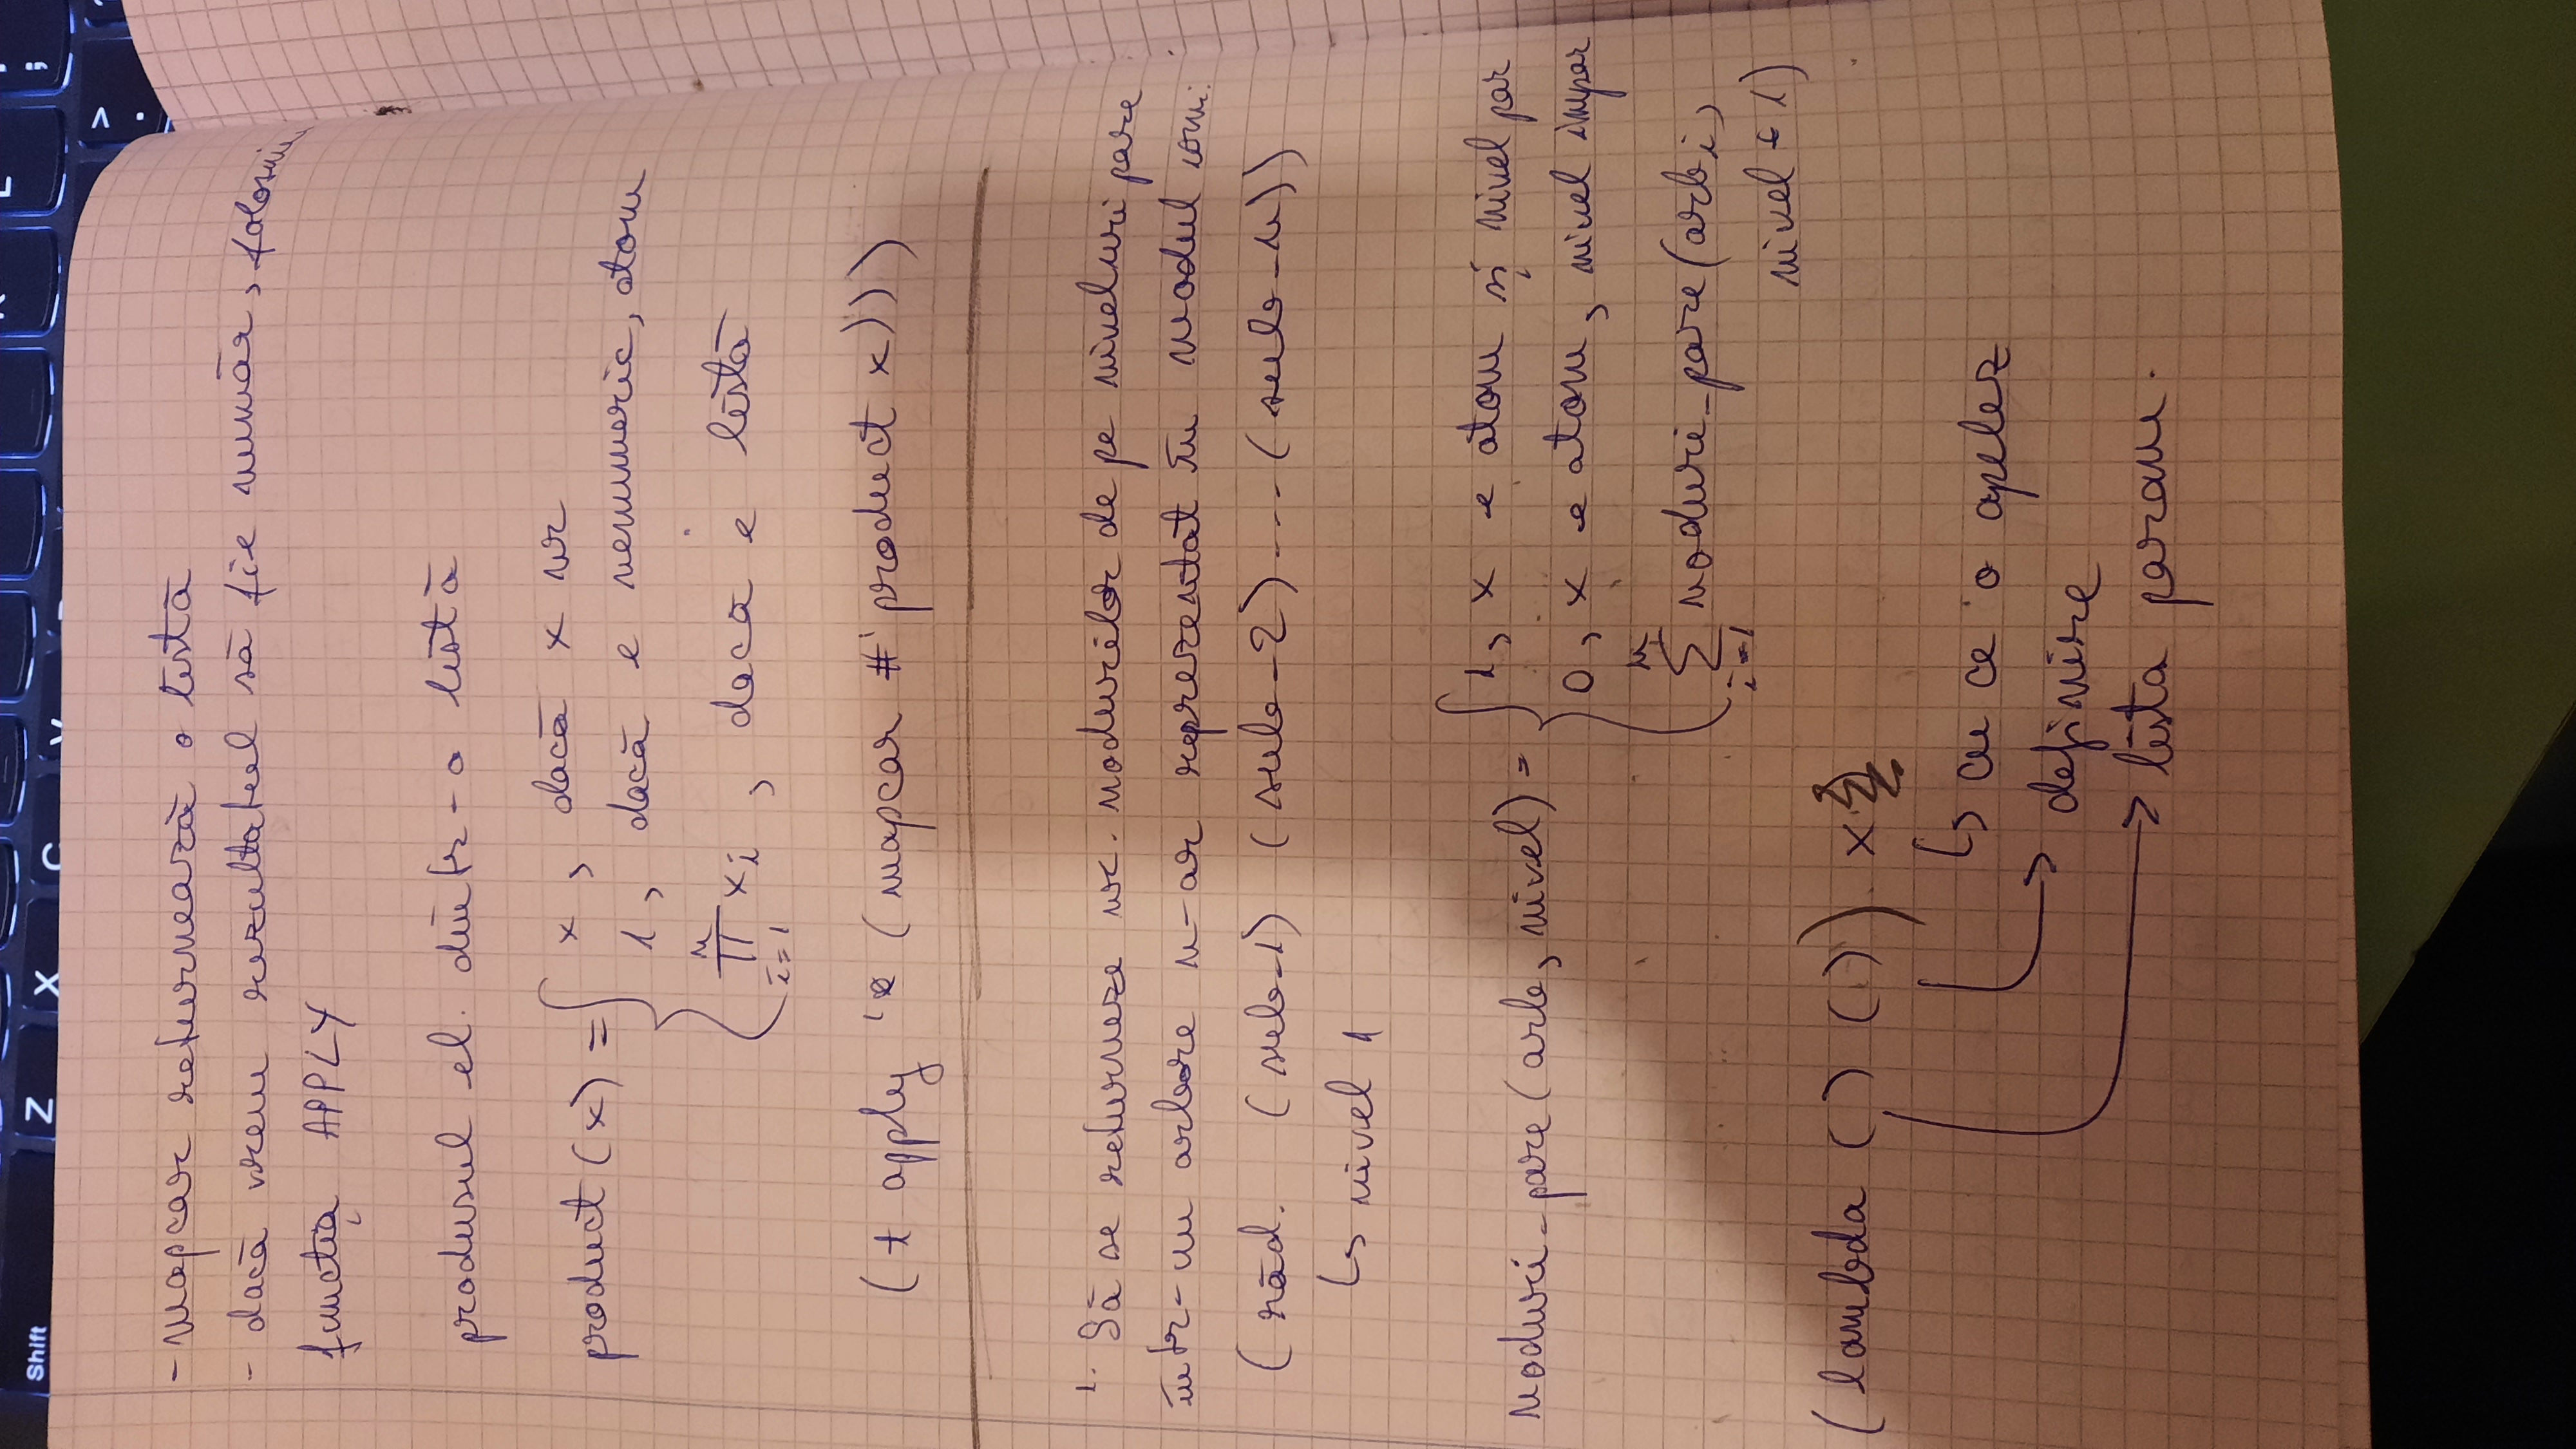 Shift Z X C
> .
- mapcar returnează o listă
- dacă vrem rezultatul să fie număr, folosim
funcția APPLY
produsul el. dintr-o listă
product (x) = { x, dacă x nr
1, dacă e nenumeric, atom
n
∏ xi, dacă e listă
i=1
(t apply '* (mapcar #'product x)))
1. Să se returneze nr. nodurilor de pe niveluri pare
într-un arbore n-ar reprezentat în modul urm:
(răd. (sub-1) (sub-2) ... (sub-n))
↳ nivel 1
noduri_pare (arb, nivel) = { 1, x e atom și nivel par
0, x e atom, nivel impar
n
∑ noduri_pare (arbi,
i=1
nivel + 1)
(lambda ( ) ( )) x
↳ cu ce o apelez
→ definire
→ lista param.